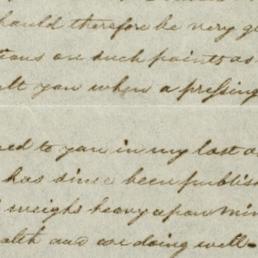 should therefore be very g
tions on such points as
lt you when a pressing
ned to you in my last a
has since been publish
weighs heavy upon min
alth and are doing well-